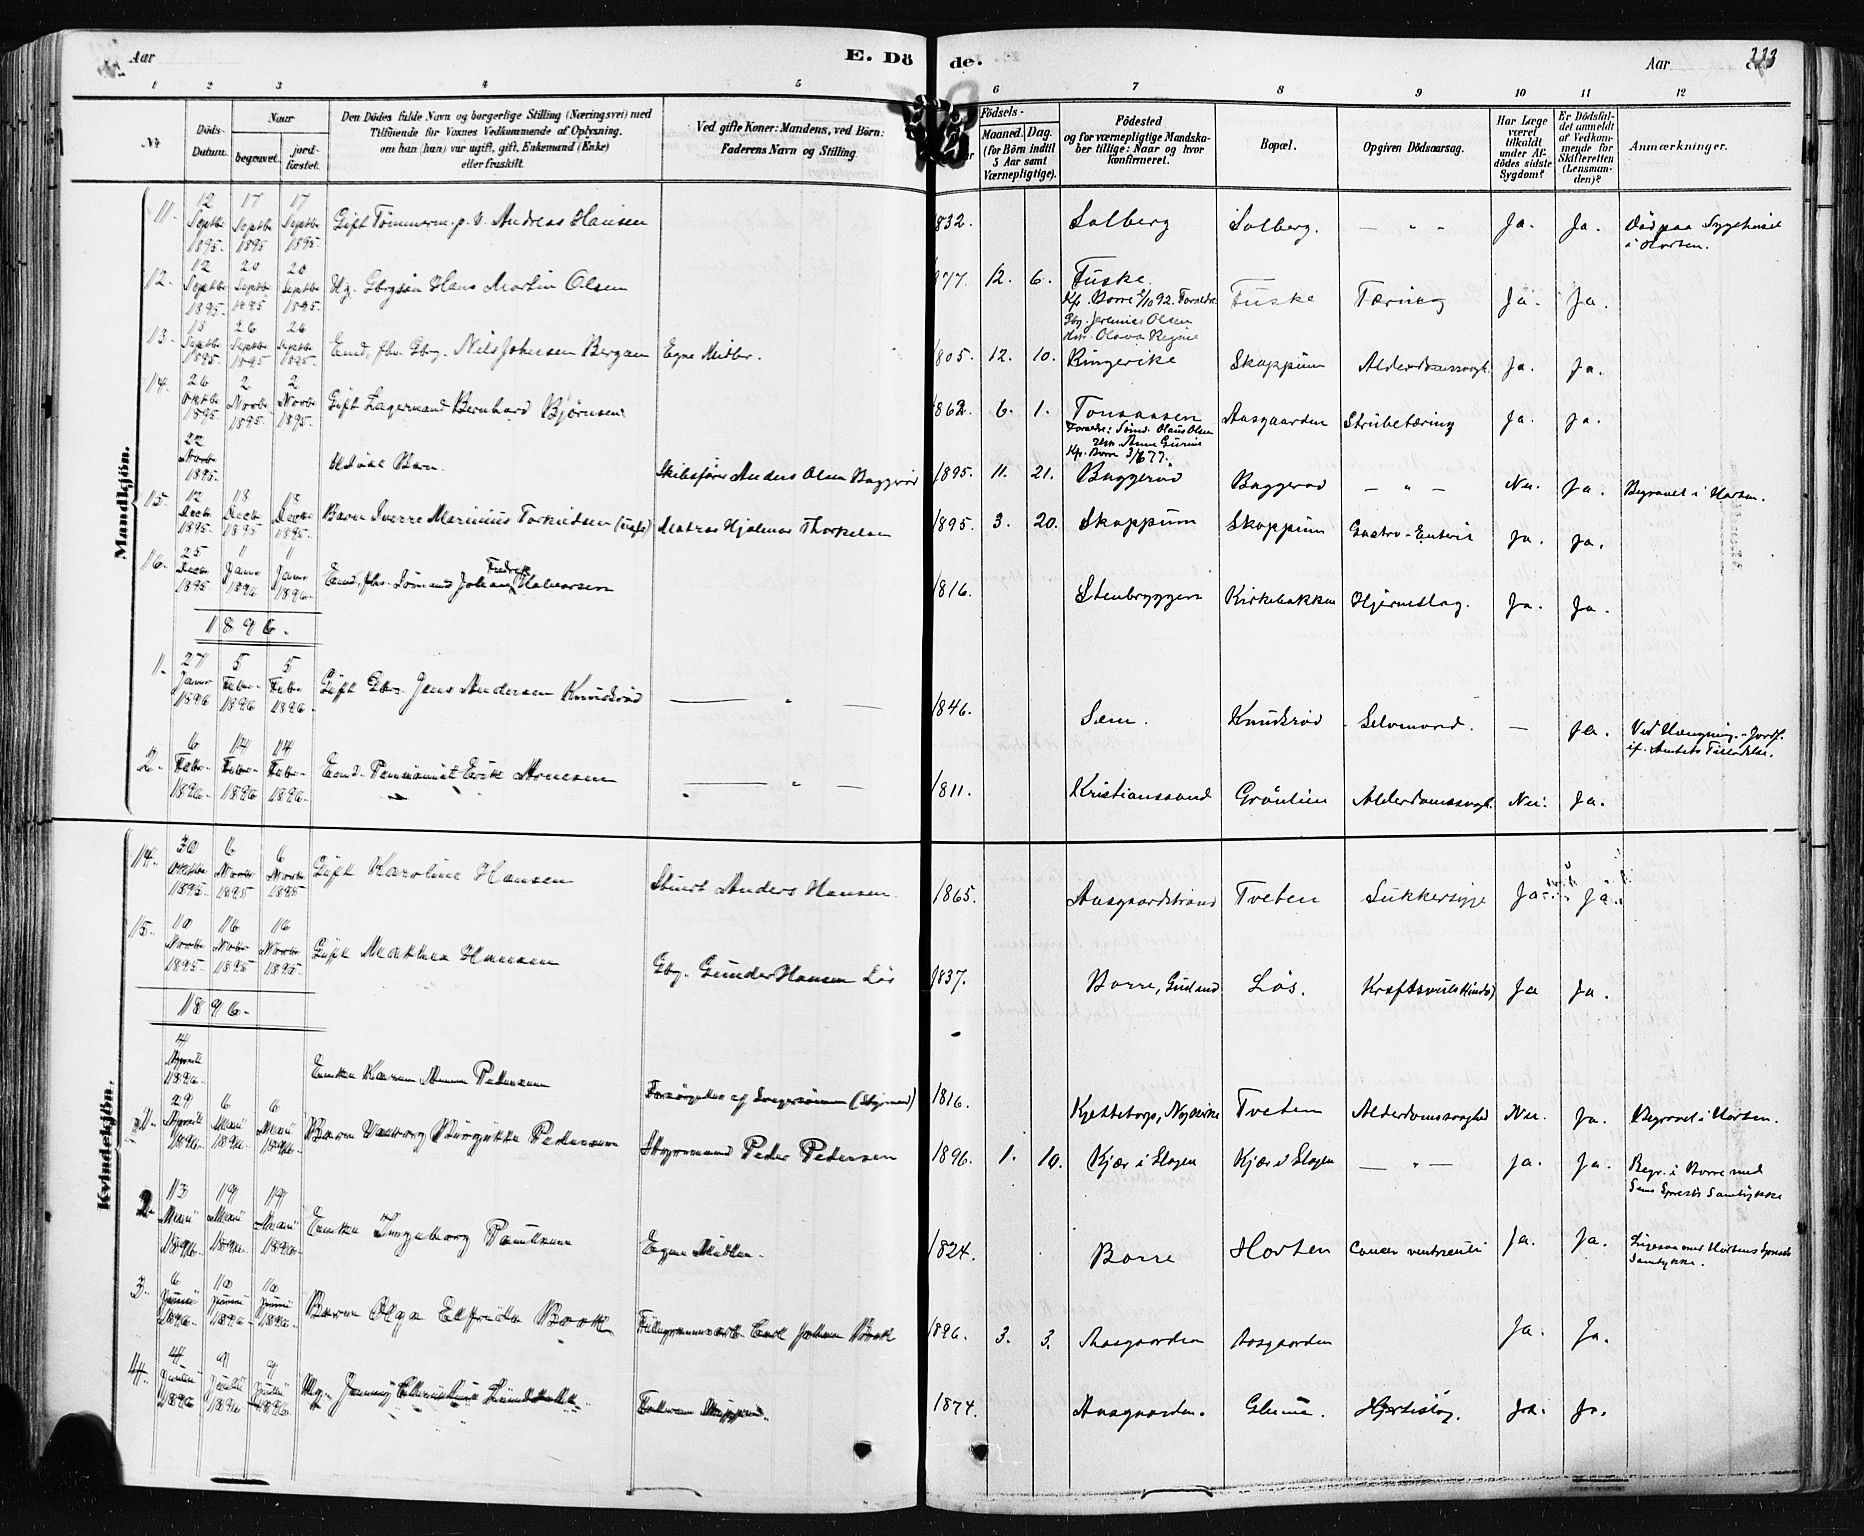 Aar
E. Dö
de.
Aar
223
1 2 3 4 5 6 7 8 9 10 11 12
Nº
Döds-
Datum.
Naar
begravet.
jord-
fæstet.
Den Dödes fulde Navn og borgerlige Stilling (Næringsvei) med
Tilföiende for Voxnes Vedkommende af Oplysning,
om han (hun) var ugift, gift, Enkemand (Enke)
eller fraskilt.
Ved gifte Koner: Mandens, ved Börn:
Faderens Navn og Stilling.
Födsels-
Maaned. Dag.
(for Börn indtil
5 Aar samt
Værnepligtige).
Födested
og for værnepligtige Mandska-
ber tillige: Naar og hvor
konfirmeret.
Bopæl.
Opgiven Dödsaarsag.
Har Læge
været
tilkaldt
under Af-
dödes sidste
Sygdom?
Er Dödsfal-
det anmeldt
af Vedkom-
mende for
Skifteretten
(Lensman-
den)?
Anmærkninger.
Mandkjön.
11. 12 Septbr 1895. 17 Septbr 1895 17 Septbr 1895. Gift Tømmerm. p. V. Andreas Hansen 1832. Solberg Solberg. — " — Ja. Ja. Død paa Sygehuset
i Horten.
12. 12 Septbr 1895. 20 Septbr 1895 20 Septbr 1895. Ug. Gbrgsøn Hans Martin Olsen 1877. 12. 6. Fuske Fuske Tæring Ja. Ja.
Kfr. Borre 2/10 92. Forældre
Gbg. Jeremias Olsen
Hu. Olava Regine
13. 26 Septbr 1895 26 Septbr 1895. Emd. fhv. Gbrg. Nils Johnsen Bergan Egne Midler. 1805. 12. 10. Ringerike Skoppum Alderdomssvagh. Ja. Ja.
14. 26 Oktbr 1895. 2 Novbr 1895. 2 Novbr 1895. Gift Lagermand Bernhard Bjørnsen 1862. 6. 1. Tonsaasen Aasgaarden Strubetæring Ja. Ja.
Forældre: Sømd. Olaus Olsen
Anne Gurine
Kfr. Borre 3/6 77.
22 Novbr 1895. Udøbt Barn. Skibsfører Anders Olsen Baggerød 1895. 11. 21. Baggerød Baggerød — " — Nei. Ja. Begravet i Horten.
15. 12 Decbr 1895. 18 Decbr 1895 Decbr 1895. Barn Sverre Marinius Torkildsen (uægte) Matros Hjalmar Thorkelsen 1895 3. 20. Skoppum Skoppum Gastro-Enterit Ja. Ja.
16. 25 Decbr 1895 11 Janr 1896 11 Janr 1896. Emd. fhv. Sømand Johan Fredrik Halvorsen 1816. Stenbryggen Kirkebakken Hjerneslag. Ja. Ja.
1896.
1. 27 Janr 1896 5 Febr 1896 5 Febr 1896. Gift Gbr. Jens Andersen Knudsrød — " — 1846. Sem. Knudsrød Selvmord. — Ja. Ved Hængning. - Jordf.
if. Amtets Tilladelse.
2. 6 Febr 1896. 14 Febr 1896. 14 Febr 1896. Emd. Pensionist Erik Arnesen — " — 1811. Kristianssand Grønlien Alderdomssvagh. Nei. Ja.
Kvindekjön.
14. 30 Oktbr 1895 6 Novbr 1895 6 Novbr 1895 Gift Karoline Hansen Stuert Anders Hansen. 1865. Aasgaardstrand Tveten Sukkersyge Ja. Ja.
15. 10 Novbr 1895. 16 Novbr 1895 16 Novbr 1895. Gift Mathea Hansen Gbg. Gunder Hansen Løs 1837. Borre, Løs. Ja Ja.
1896.
14 April 1896. Enke Karen Anna Pedersen Forsørgedes af Svigersønnen (Styrmand) 1816. Kjettetorp, Nykirke Tveten Alderdomssvaghed Nei. Ja. Begravet i Horten.
1. 29 April 1896. 6 Mai 1896. 6 Mai 1896. Barn Valborg Birgitte Pedersen Styrmand Peder Pedersen 1896. 1. 10. Kjær i Slagen Kjær i Slagen — " — Ja. Ja. Begr. i Borre med
Sems Spræsts Samtykke
2. 13 Mai 1896. 19 Mai 1896. 19 Mai 1896. Enke Ingeborg Paulsen Egne Midler. 1824. Borre Horten Cancer ventriculi Ja. Ja. Ligesaa med Hortens Spræsts
Samtykke.
3. 6 Juni 1896. 10 Juni 1896 10 Juni 1896. Barn Olga Elfrida Book Carl Johan Book 1896. 3. 3. Aasgaarden Aasgaarden Ja. Ja.
4. 4 1896 9 1896. 9 1896. Ug. Jenny 1874. Aasgaarden. Hjerteslag. Ja. Ja.